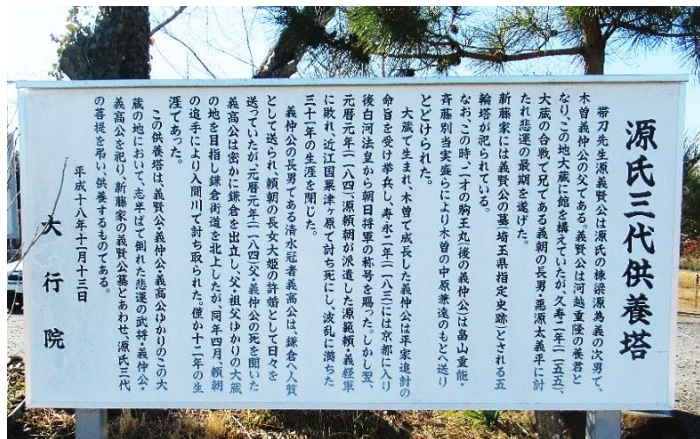 源氏三代供養塔
帯刀先生源義賢公は源氏の棟梁源為義の次男で、
木曽義仲公の父である。義賢公は河越重隆の養君と
なり、この地大蔵に館を構えていたが、久寿二年(一一五五)、
大蔵の合戦で兄である義朝の長男・悪源太義平に討
たれ悲運の最期を遂げた。
新藤家には義賢公の墓(埼玉県指定史跡)とされる五
輪塔が祀られている。
なお、この時、二才の駒王丸(後の義仲公)は畠山重能・
斉藤別当実盛らにより木曽の中原兼遠のもとへ送り
とどけられた。
大蔵で生まれ、木曽で成長した義仲公は平家追討の
命旨を受け挙兵し、寿永二年(一一八三)には京都に入り
後白河法皇から朝日将軍の称号を賜った。しかし翌、
元暦元年(一一八四)、源頼朝が派遣した源範頼・義経軍
に敗れ、近江国粟津ヶ原で討ち死にし、波乱に満ちた
三十一年の生涯を閉じた。
義仲公の長男である清水冠者義高公は、鎌倉へ人質
として送られ、頼朝の長女大姫の許婚として日々を
送っていたが、元暦元年(一一八四)父・義仲公の死を聞いた
義高公は密かに鎌倉を出立し、父・祖父ゆかりの大蔵
の地を目指し鎌倉街道を北上したが、同年四月、頼朝
の追手により入間川で討ち取られた。僅か十二年の生
涯であった。
この供養塔は、義賢公・義仲公・義高公ゆかりのこの大
蔵の地において、志半ばで倒れた悲運の武将・義仲公・
義高公を祀り、新藤家の義賢公墓とあわせ、源氏三代
の菩提を弔い、供養するものである。
平成十八年十一月十三日
大行院